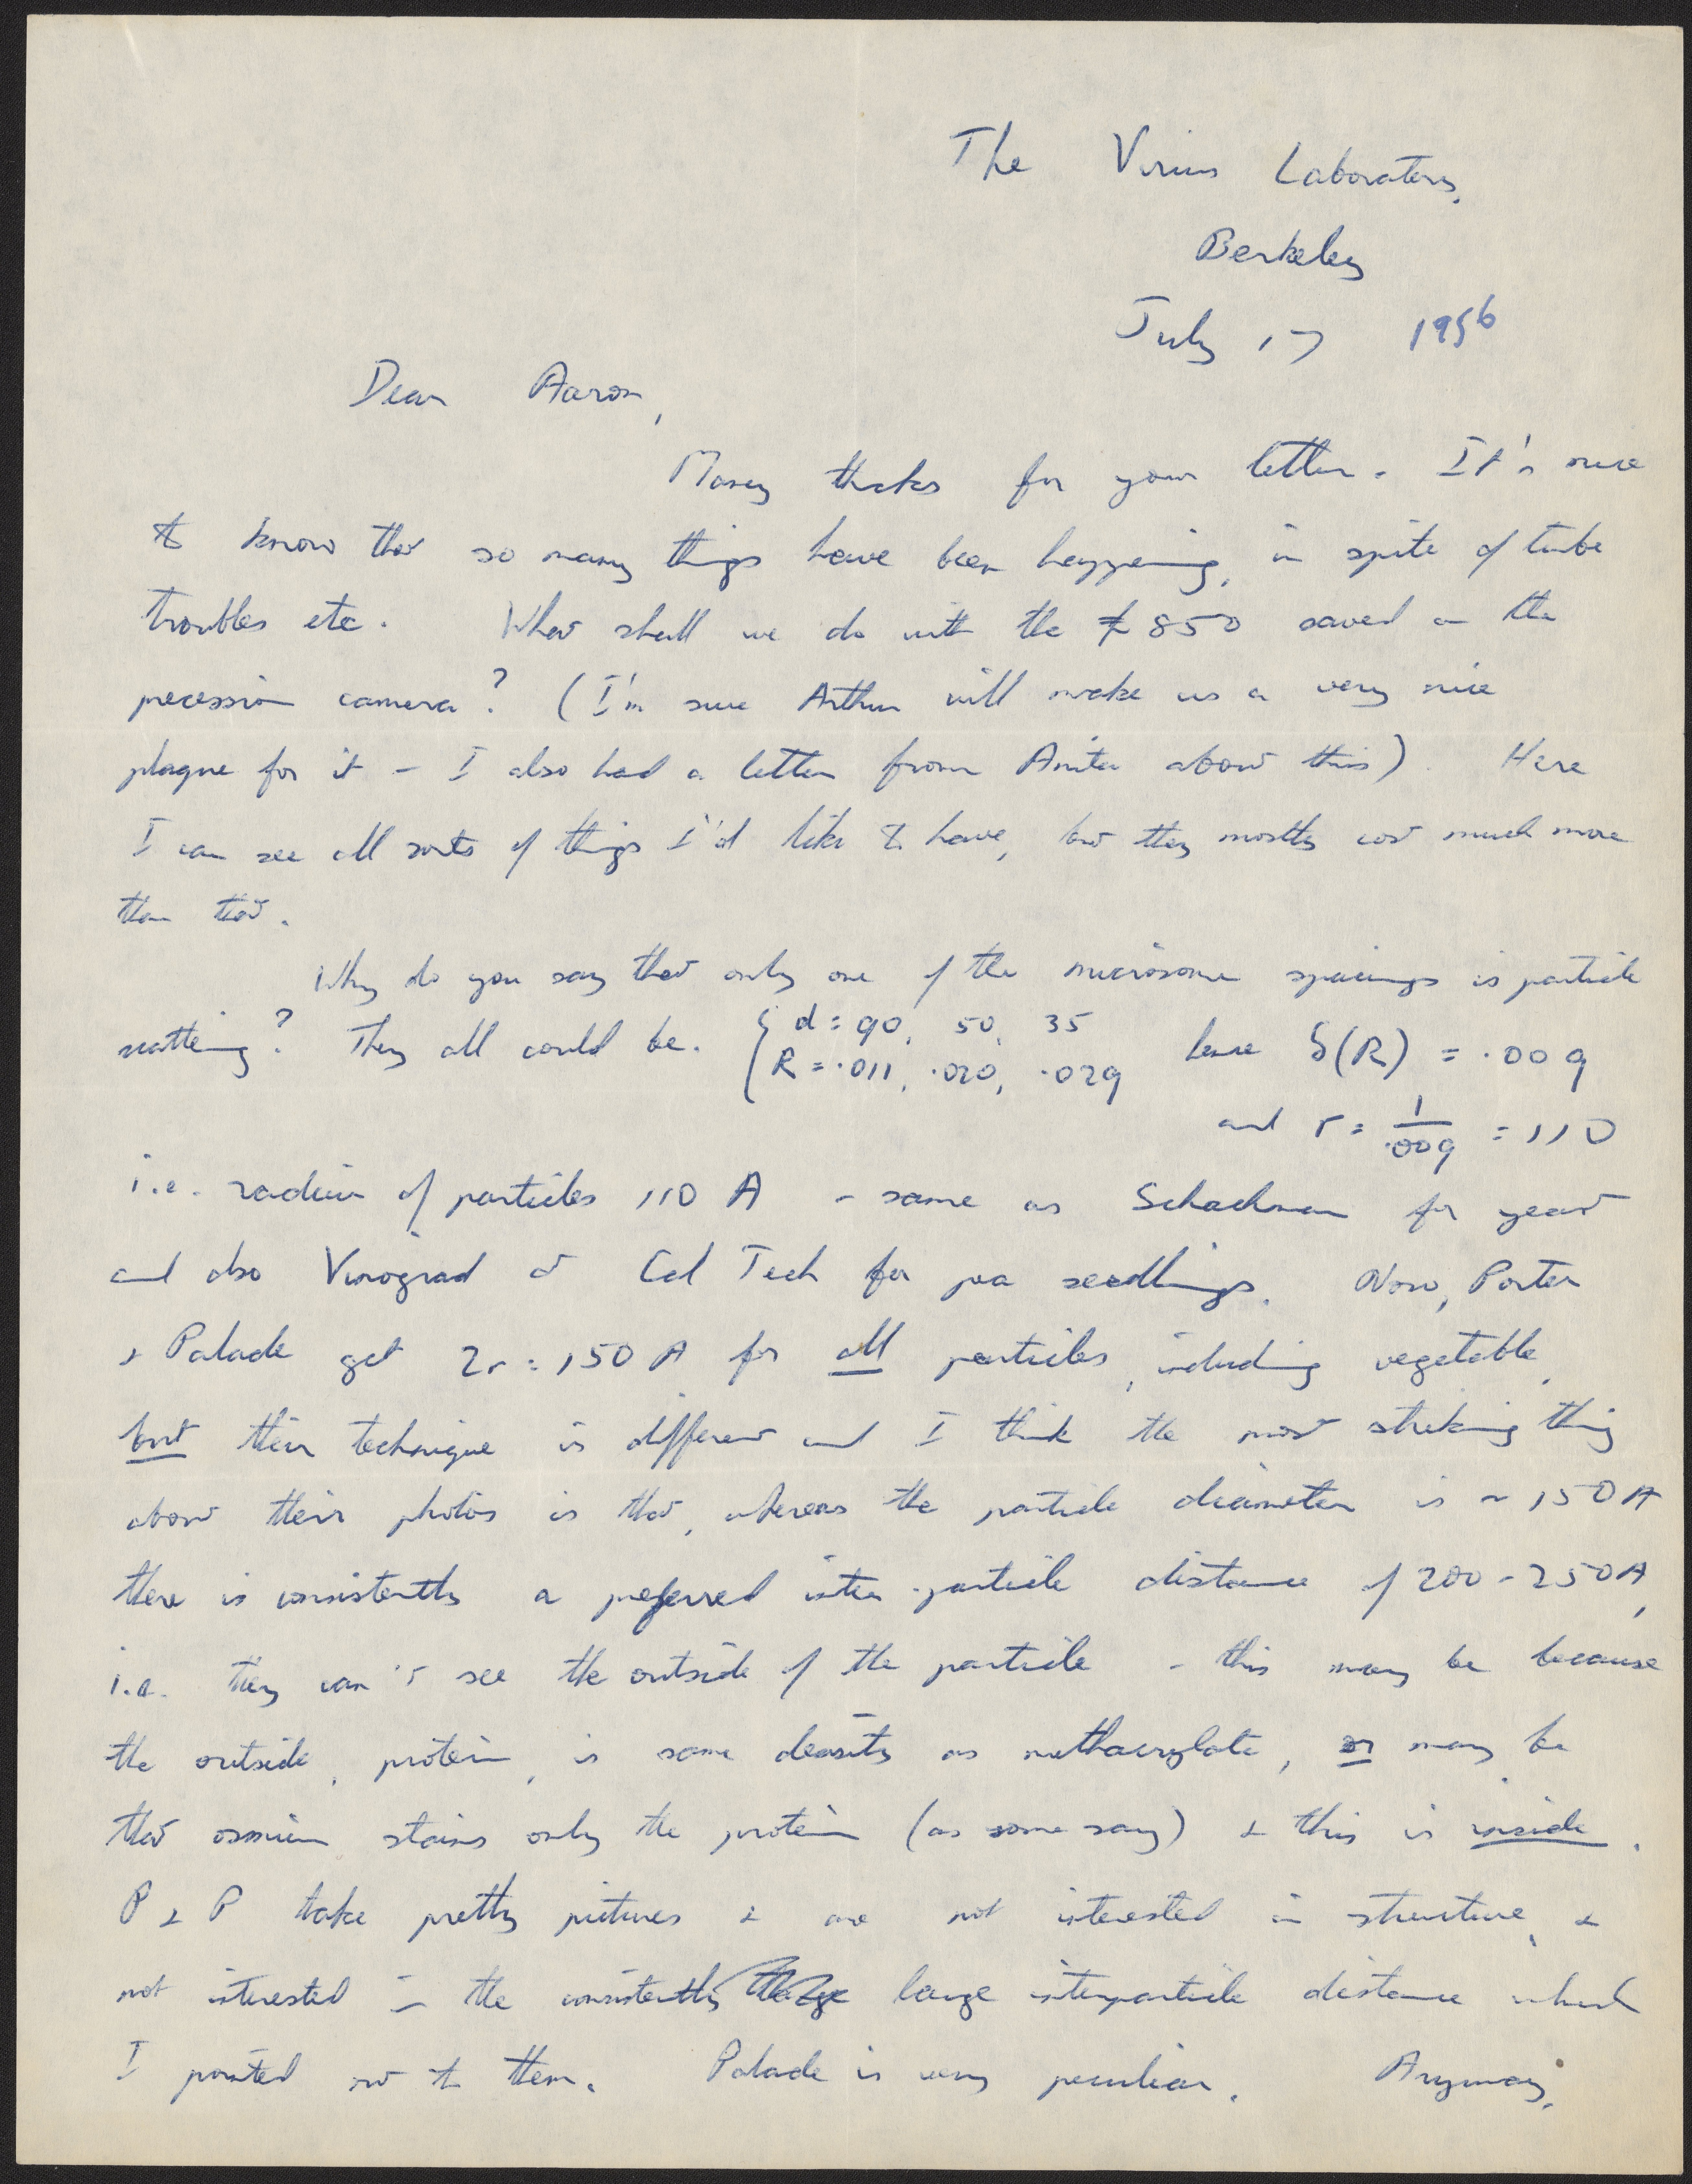 The Virus Laboratory,
Berkeley
July 17 1956
Dear Aaron,
Many thanks for your letter. It's nice
to know that so many things have been happening, in spite of tube
troubles etc. What shall we do with the £850 saved on the
precession camera? (I'm sure Arthur will make us a very nice
plaque for it - I also had a letter from Anita about this). Here
I can see all sorts of things I'd like to have, but they mostly cost much more
than that.
Why do you say that only one of the microsome spacings is particle
scattering? They all could be. { d = 90, 50, 35
R = .011, .020, .029 hence δ(R) = .009
and r = 1/.009 = 110
i.e. radius of particles 110 A - same as Schachman for yeast
and also Vinograd at Cal Tech for pea seedlings. Now, Porter
& Palade get 2r = 150 A for all particles, including vegetable,
but their technique is different and I think the most striking thing
about their photos is that, whereas the particle diameter is ~ 150 A
there is consistently a preferred inter-particle distance of 200-250 A,
i.e. they can't see the outside of the particle - this may be because
the outside, protein, is same density as methacrylate, or may be
that osmium stains only the protein (as some say) & this is inside.
P & P take pretty pictures & are not interested in structure, &
not interested in the consistently large interparticle distance which
I pointed out to them. Palade is very peculiar. Anyway,